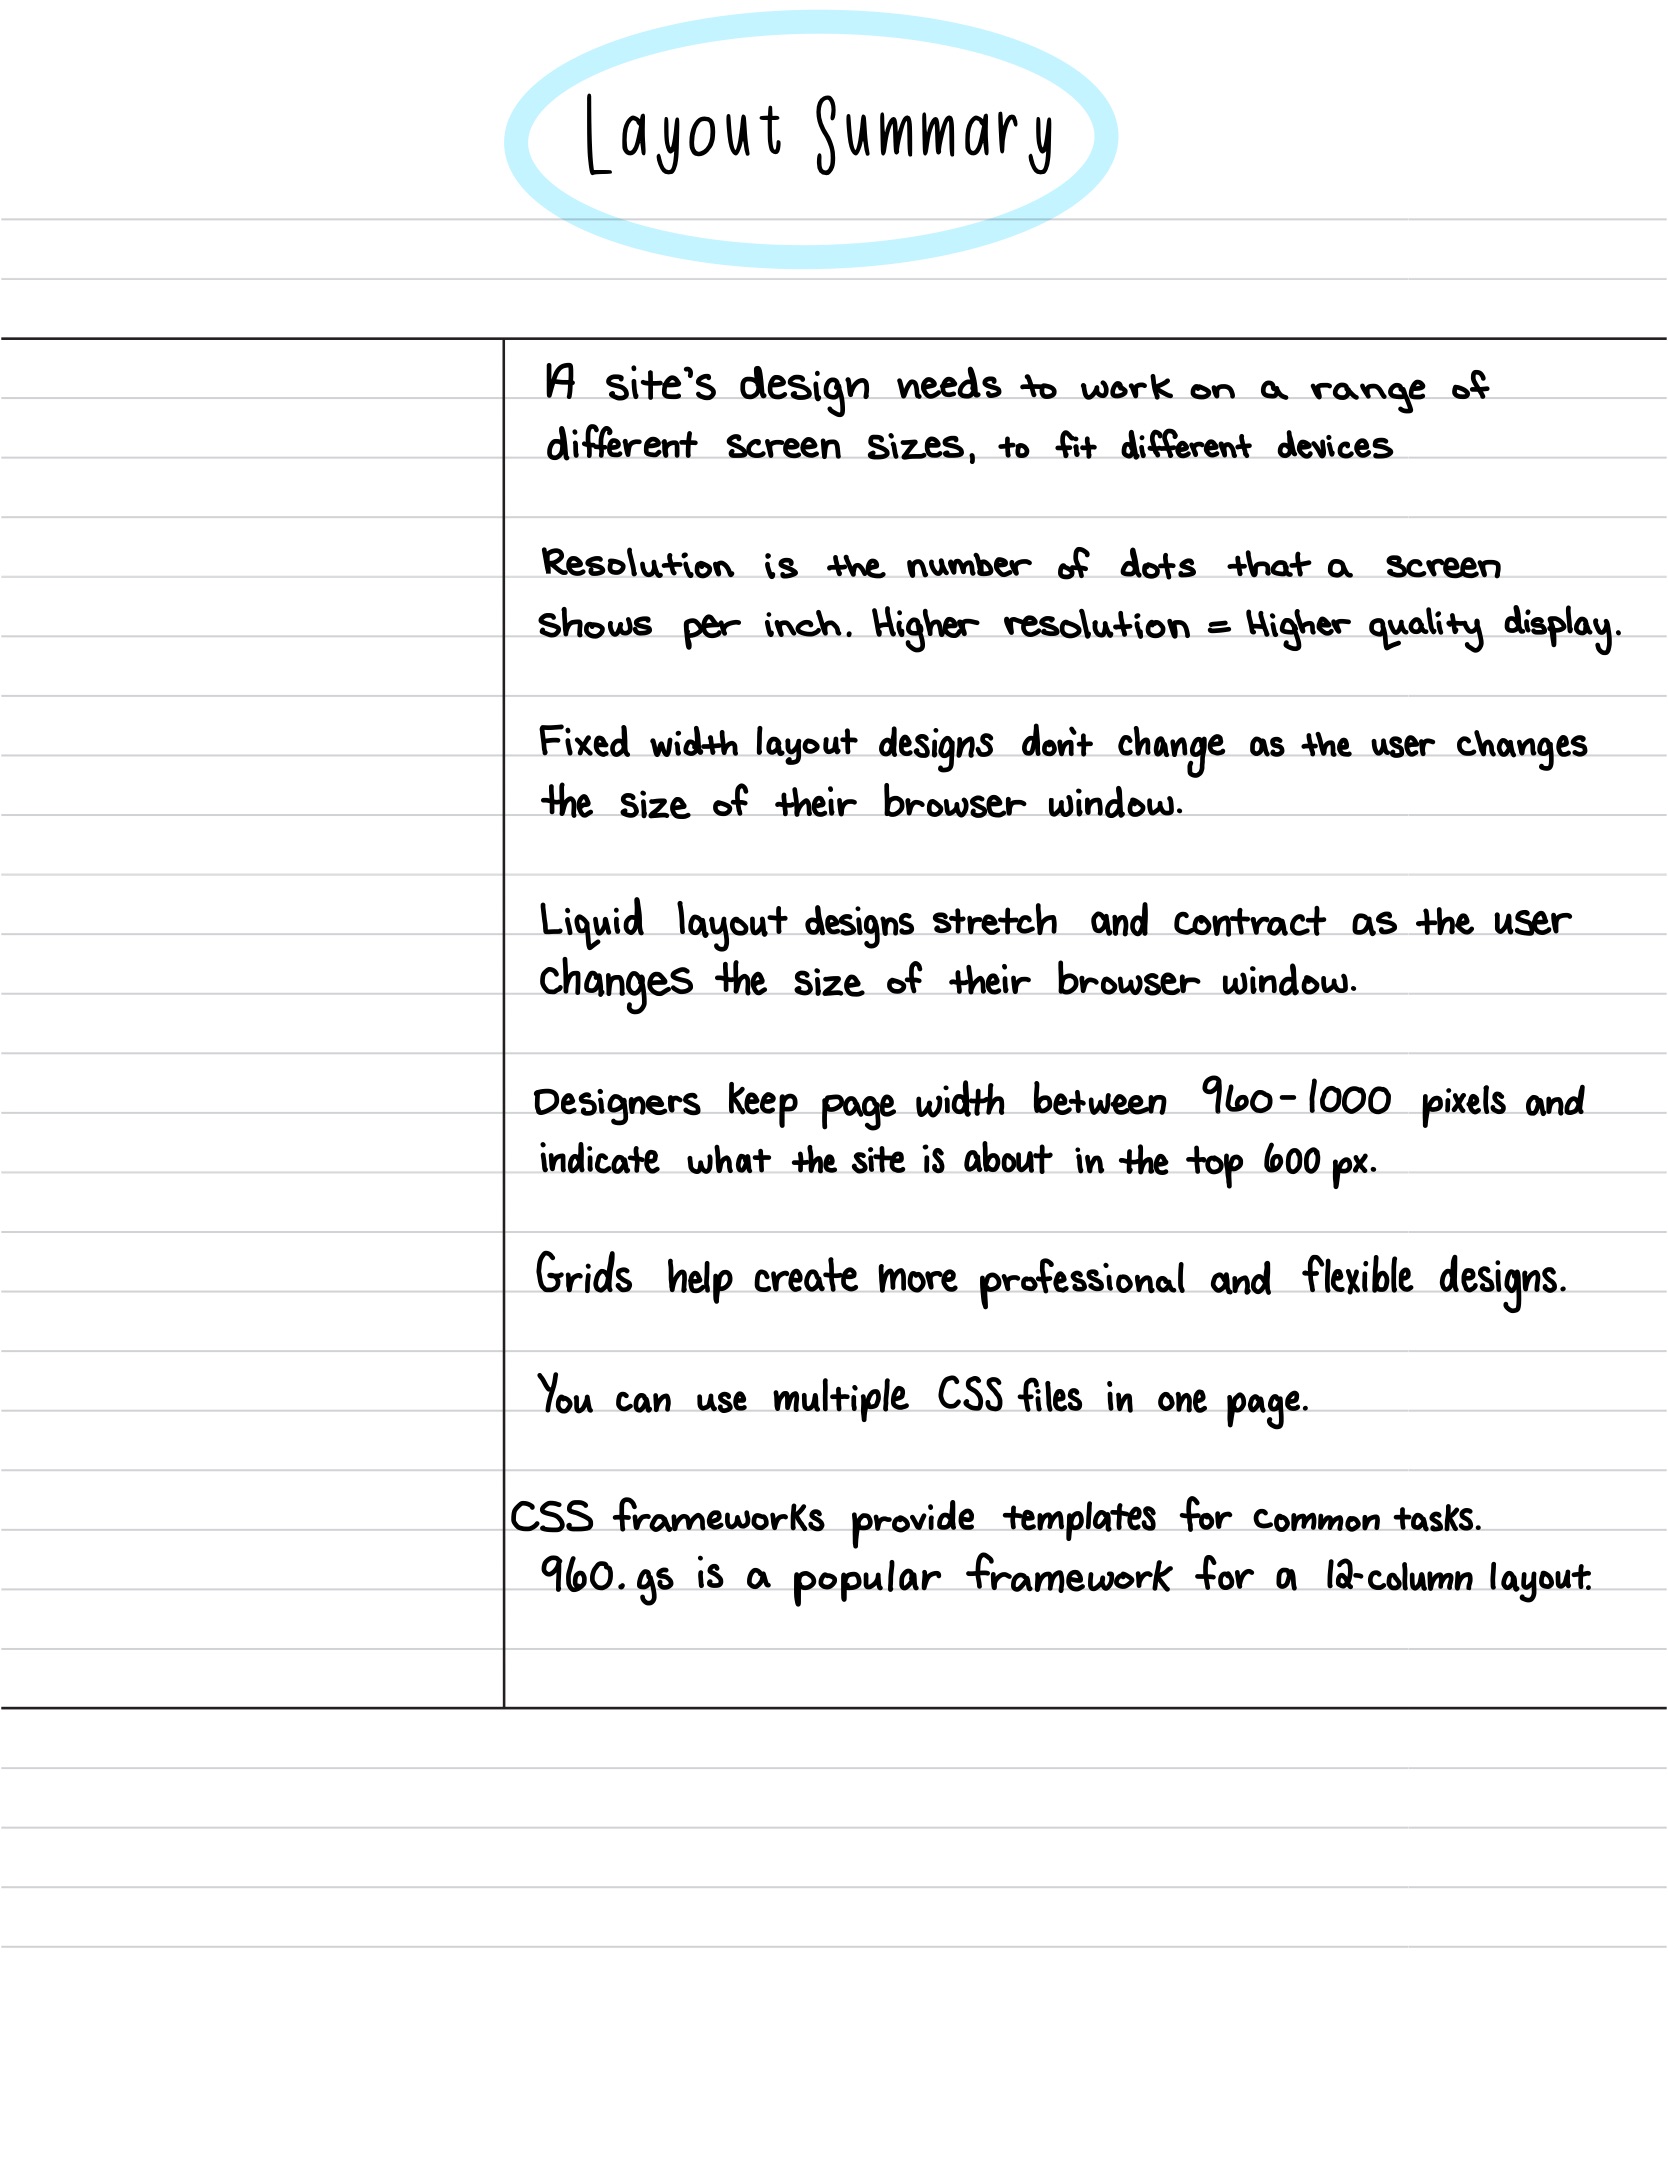 Layout Summary
A site's design needs to work on a range of
different screen sizes, to fit different devices
Resolution is the number of dots that a screen
shows per inch. Higher resolution = Higher quality display.
Fixed width layout designs don't change as the user changes
the size of their browser window.
Liquid layout designs stretch and contract as the user
changes the size of their browser window.
Designers keep page width between 960-1000 pixels and
indicate what the site is about in the top 600 px.
Grids help create more professional and flexible designs.
You can use multiple CSS files in one page.
CSS frameworks provide templates for common tasks.
960.gs is a popular framework for a 12-column layout.